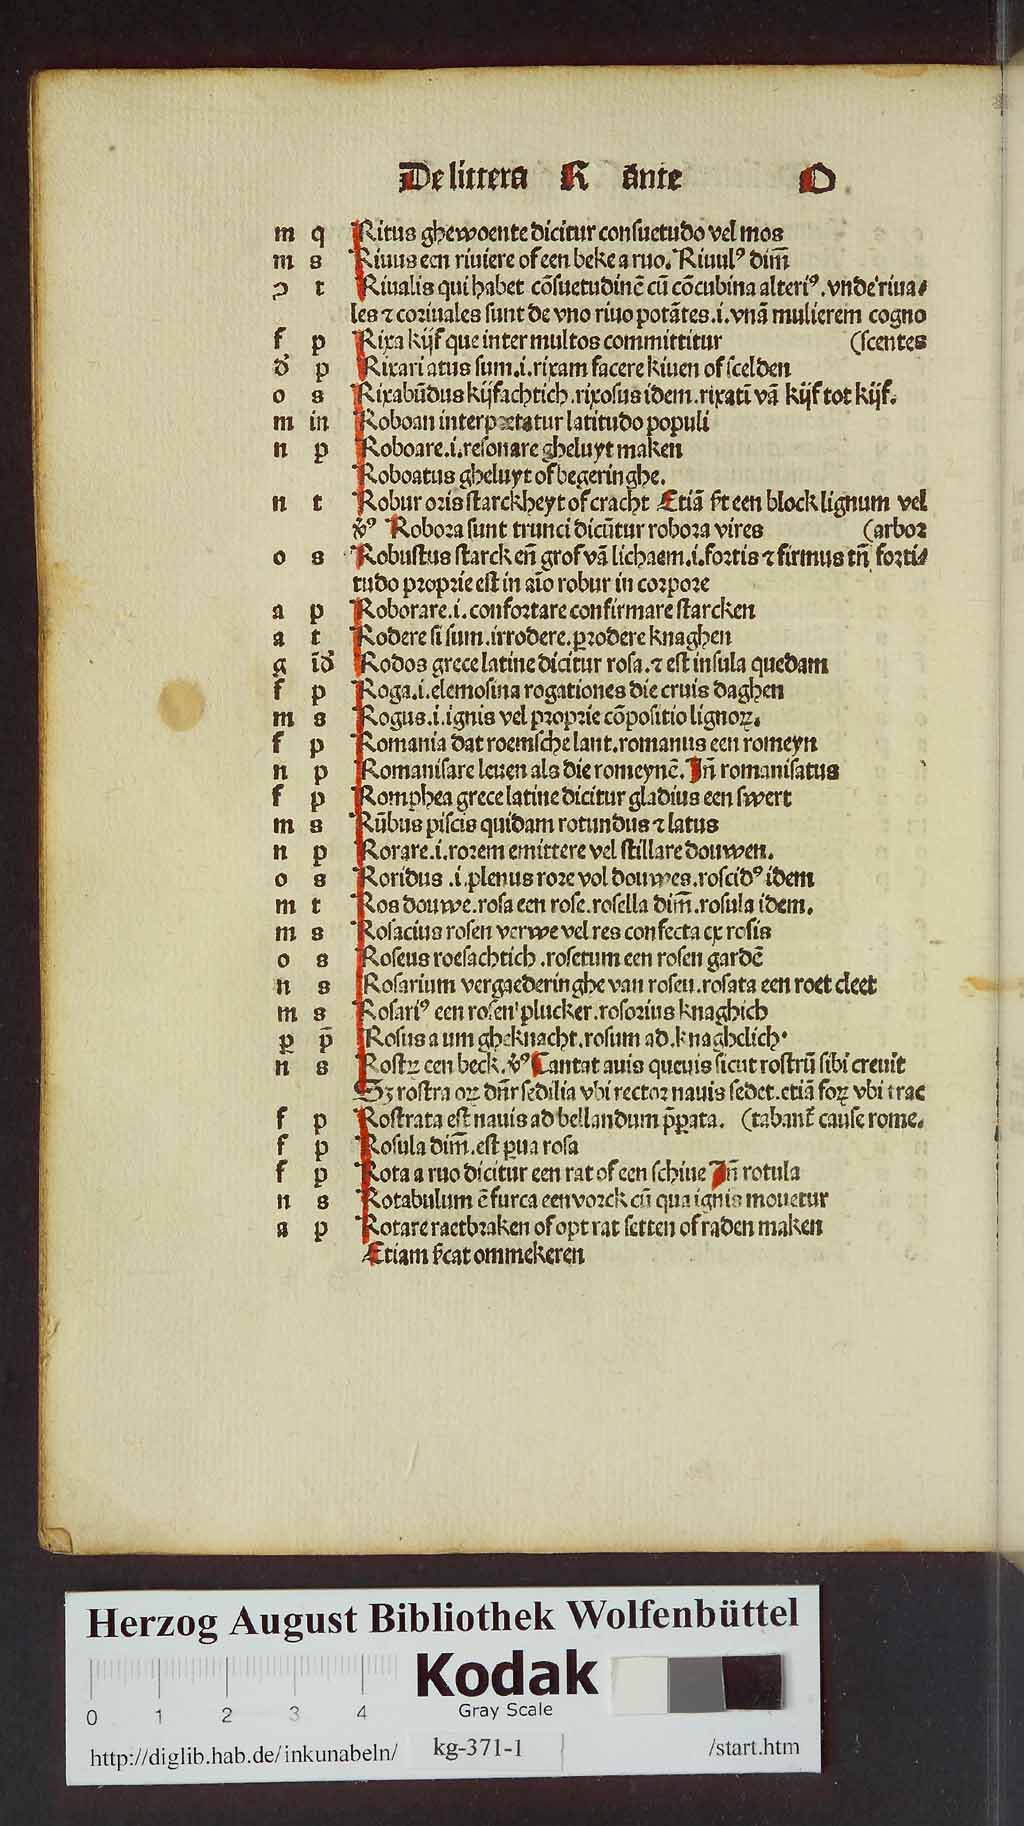 De littera R ante O
m q Ritus ghewoente dicitur consuetudo vel mos
m s Riuus een riuiere of een beke a ruo. Riuulꝰ dim̄
ɔ t Riualis qui habet cōsuetudinē cū cōcubina alteriꝰ. vnde riua⸗
les ⁊ coriuales sunt de vno riuo potātes .i. vnā mulierem cogno
f p Rixa kijf que inter multos committitur (scentes
d̄ p Rixari atus sum .i. rixam facere kiuen of scelden
o s Rixabūdus kijfachtich. rixosus idem. rixatī vā kijf tot kijf.
m in Roboan interpretatur latitudo populi
n p Roboare .i. resonare gheluyt maken
Roboatus gheluyt of begeringhe.
n t Robur oris starckheyt of cracht Etiā s̄t een block lignum vel
v̄ꝰ Robora sunt trunci dicūtur robora vires (arbor
o s Robustus starck eñ grof vā lichaem .i. fortis ⁊ firmus tñ forti⸗
tudo proprie est in aīo robur in corpore
a p Roborare .i. confortare confirmare starcken
a t Rodere si sum. irrodere. prodere knaghen
g id̄ Rodos grece latine dicitur rosa. ⁊ est insula quedam
f p Roga .i. elemosina rogationes die cruis daghen
m s Rogus .i. ignis vel proprie cōpositio lignoꝝ.
f p Romania dat roemsche lant. romanus een romeyn
n p Romanisare leuen als die romeynē. Iñ romanisatus
f p Romphea grece latine dicitur gladius een swert
m s Rūbus piscis quidam rotundus ⁊ latus
n p Rorare .i. rorem emittere vel stillare douwen.
o s Roridus .i. plenus rore vol douwes. roscidꝰ idem
m t Ros douwe. rosa een rose. rosella dim̄. rosula idem.
m s Rosacius rosen verwe vel res confecta ex rosis
o s Roseus roesachtich. rosetum een rosen gardē
n s Rosarium vergaederinghe van rosen. rosata een roet cleet
m s Rosariꝰ een rosen plucker. rosorius knaghich
ꝑ p̄ Rosus a um gheknacht. rosum ad. knaghelich
n s Rostꝝ een beck. v̄ꝰ Cantat auis queuis sicut rostrū sibi creuit
Sꝫ rostra oꝝ dn̄r sedilia vbi rector nauis sedet. etiā foꝝ vbi trac
f p Rostrata est nauis ad bellandum p̄ꝑata. (tabant̄ cause rome.
f p Rosula dim̄. est ꝑua rosa
f p Rota a ruo dicitur een rat of een schiue Iñ rotula
n s Rotabulum ē furca een vorck cū qua ignis mouetur
a p Rotare raetbraken of opt rat setten of raden maken
Etiam s̄cat ommekeren
Herzog August Bibliothek Wolfenbüttel
Kodak
Gray Scale
0 1 2 3 4
http://diglib.hab.de/inkunabeln/ kg-371-1 /start.htm